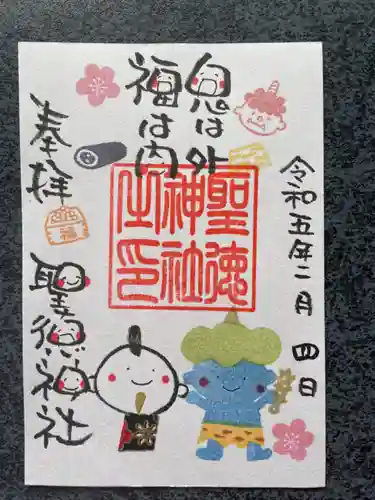 鬼は外
福は内
奉拝
聖徳神社
令和五年二月四日
聖徳
神社
之印
福